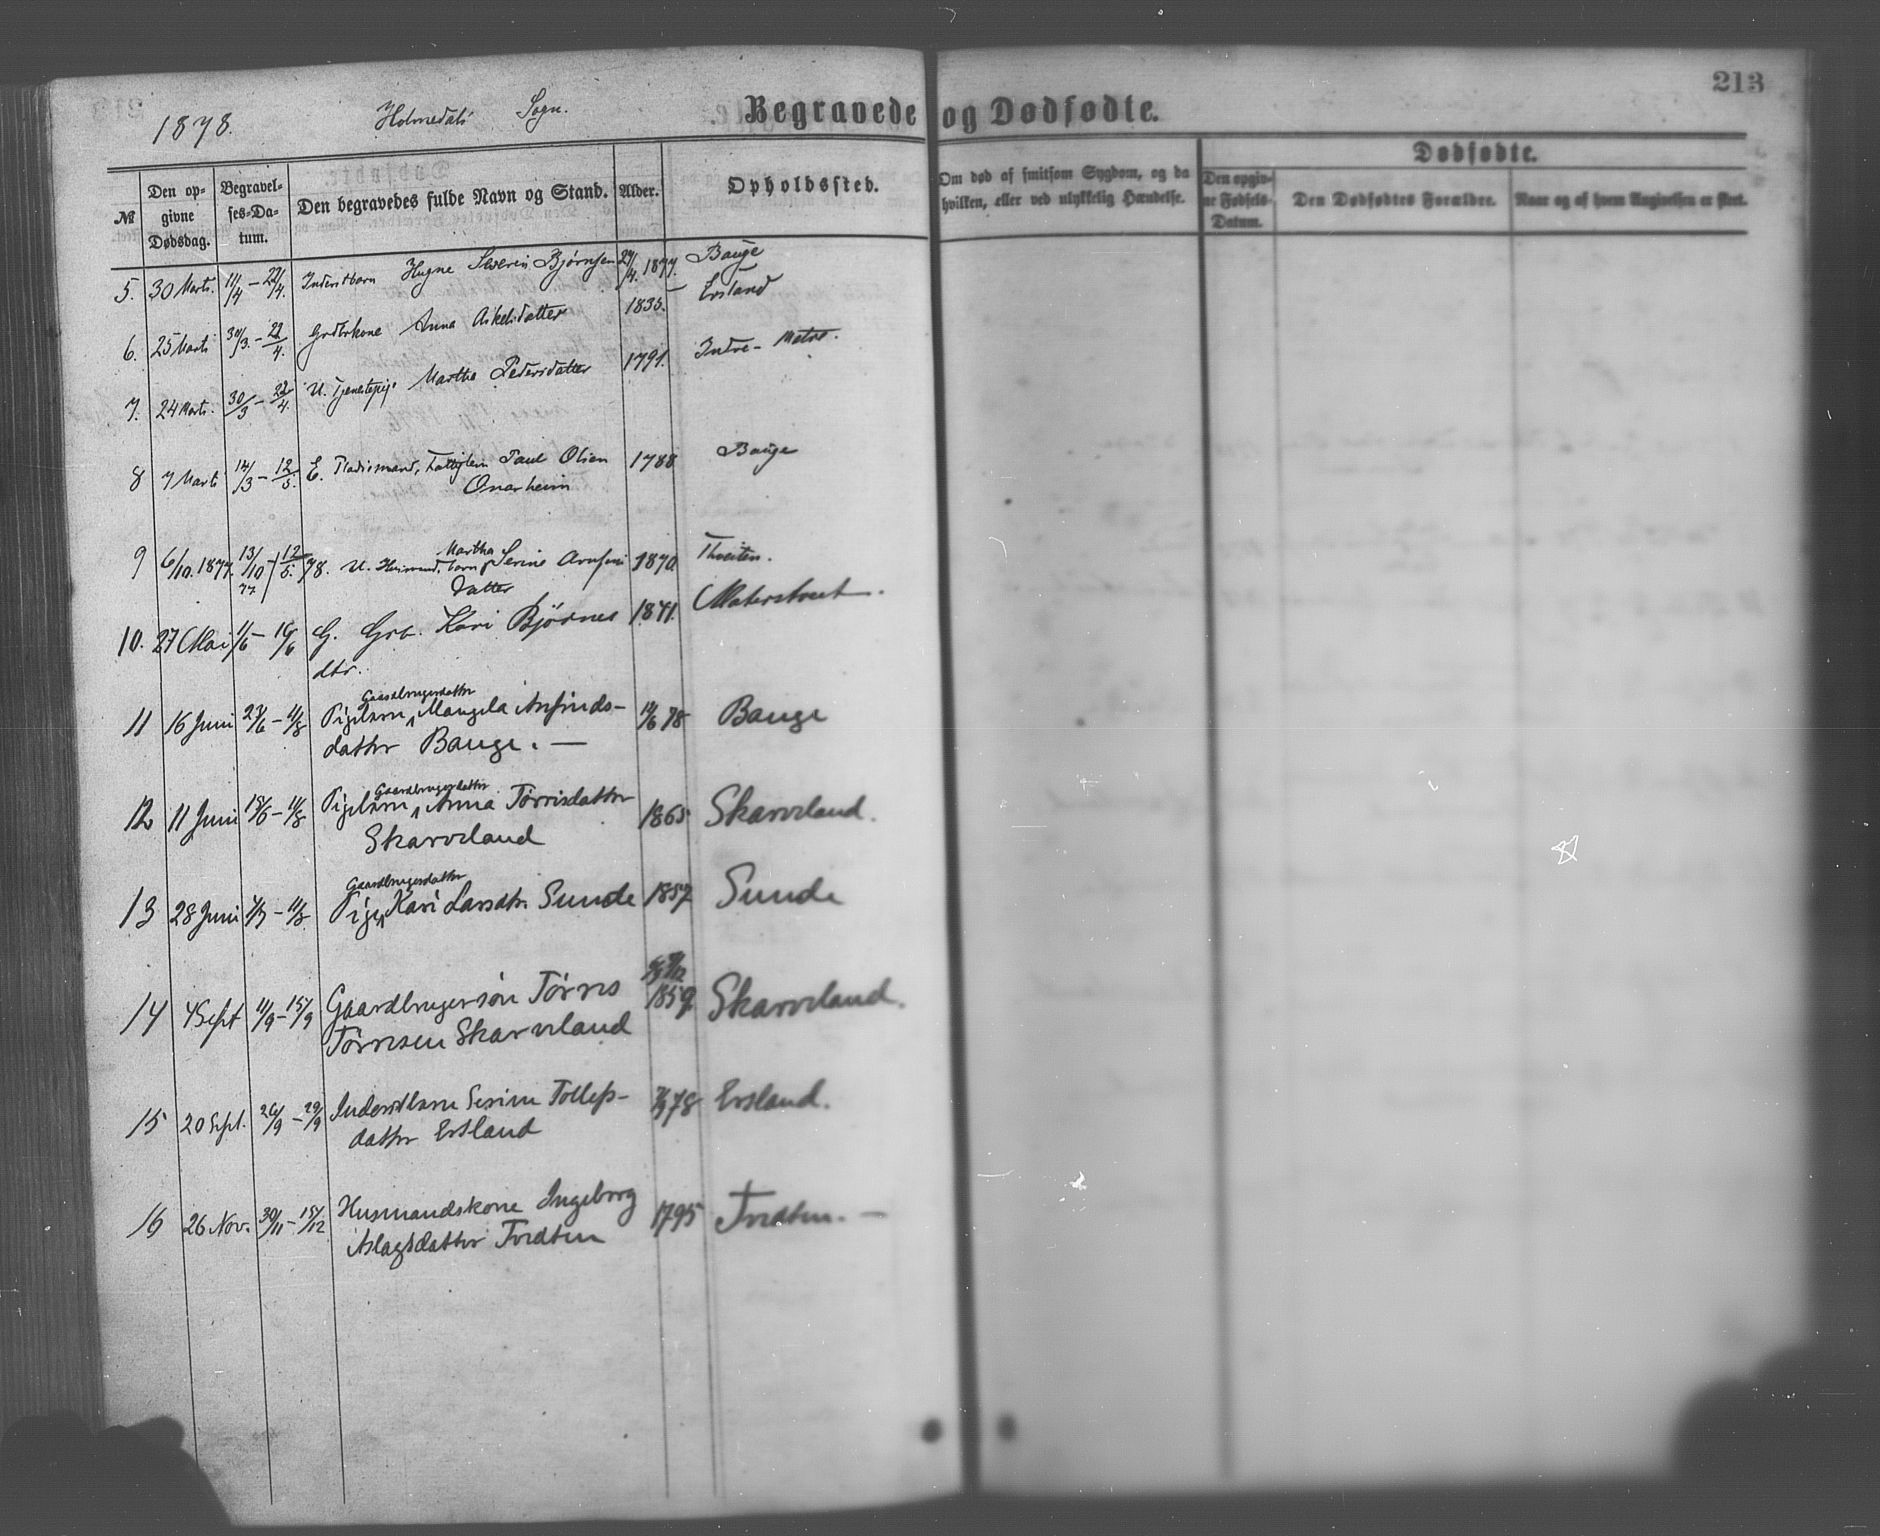 213
1878. Holmedals Sogn. Begravede og Dødfødte.
Dødfødte.
№
Den opgivne Dødsdag.
Begravelses-Datum.
Den begravedes fulde Navn og Stand.
Alder.
Opholdssted.
Om død af smitsom Sygdom, og da hvilken, eller ved ulykkelig Hændelse.
Den opgivne Fødsels-Datum.
Den Dødfødtes Forældre.
Naar og af hvem Angivelsen er skeet.
5. 30 Marts. 11/4 – 22/4. Inderstbarn Severin Bjørnsen 1877. Bauge
6. 25 Marts 30/3. – 22/4. Anna Askelsdatter 1835. – Ersland
7. 24 Marts. 30/3 – 22/4. U. Tjenestepige Martha Pedersdatter 1791. Indre- Matre.
8 7 Marts 14/3 – 12/5. E. Pladsmand, Fattiglem Paul Olsen 1788 Bauge
Onarheim
9 6/10. 1877. 13/10 77 – 12/5. 78. U. Husmand. barn Martha Serine 1870. Thveiten.
datter
10. 27 Mai 1/6 – 16/6 G. Grb. Kari Bjørnes 1841. Materstvet.
dtr.
Gaardbrugerdatter
11 16 Juni – 11/8 Pigebarn Mangela Anfinds- 14/6 78 Bauge
datter Bauge. —
Gaardbrugerdatter
12 11 Juni 18/6 – 11/8 Pigebarn Anna Tørrisdatter 1865 Skarveland.
Skarveland
Gaardbrugerdatter
13 28 Juni 7/7 – 11/8. Pige Kari Larsdtr. Sunde 1857 Sunde
14 4 Sept 11/9 – 15/9 Gaardbrugersøn Tørres 1859 Skarveland.
Tørresen Skarveland
15 20 Sept. 26/9 – 29/9 Inderstbarn Serine Tollefs- 78 Ersland.
datter Ersland
16 26 Nov. 30/11 – 15/12 Husmandskone Ingeborg 1795 Tvedten. —
Aslagsdatter Tvedten